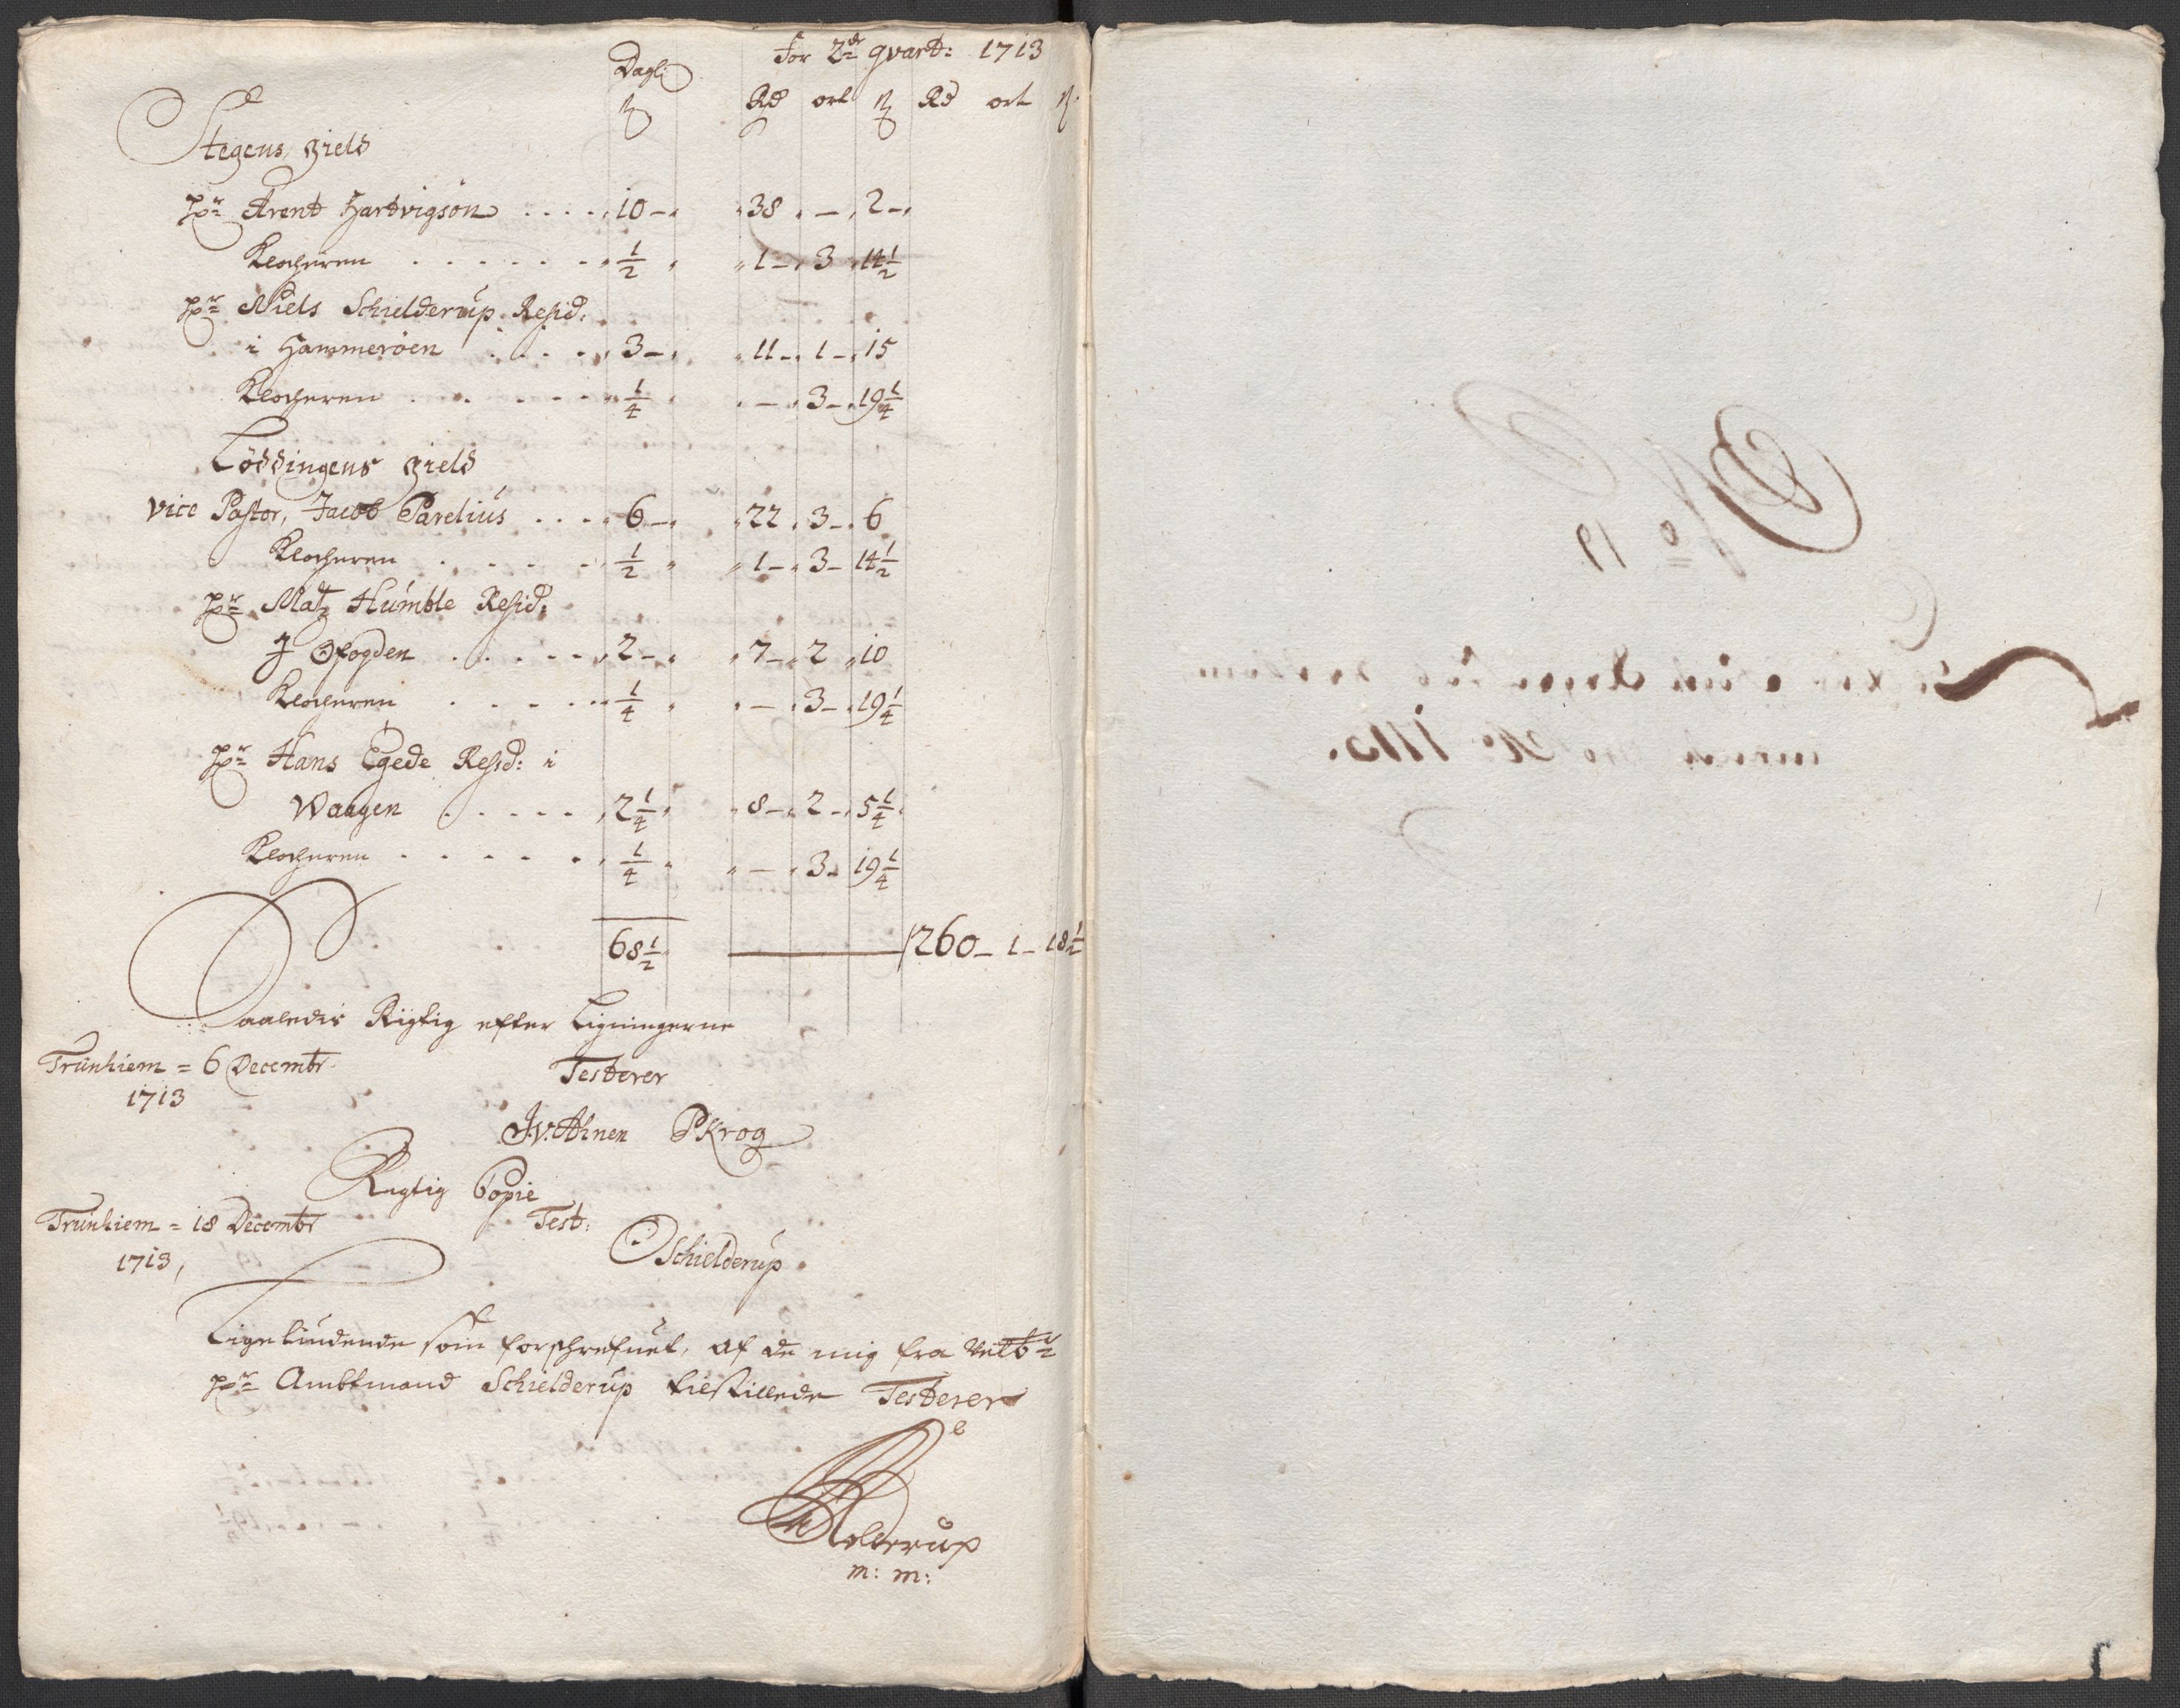 Dagl: For 2de qvart: 1713
ß Rd ort ß Rd ort ß
Stegens gield
hr Arent Hartvigsøn . . . . 10 – 38 – 2 –
Klocheren . . . . . . ½ 1 – 3 14½
hr Niels Schielderup Resid:
i Hammerøen . . . . 3 – 11 – 1 – 15
Klocheren . . . . . . ¼ – 3 – 19¼
Løddingens gield
Vice Pastor, Jacob Parelius . . . . 6 – 22 3 – 6
Klocheren . . . . . ½ 1 – 3 – 14½
hr Matz Humble Resid:
J Ofogden . . . . . 2 – 7 – 2 10
Klocheren . . . . . ¼ – 3 – 19¼
hr Hans Egede Resid: i
Waagen . . . . . 2¼ 8 – 2 – 5¼
Klocheren . . . . . ¼ – 3 – 19¼
68½ 260 – 1 – 18½
Saaledis Rigtig efter Ligningerne
Trünhiem = 6 Decembr Testerer
1713
J.V.Ahnen PKrog
Rigtig Copie
Trünhiem = 18 Decembr Test:
1713, OSchielderup
Ligelüdende som forschrefuet, af de mig fra
hr Ambtmand Schielderup tilstillede Testerer
m: m:
No 19